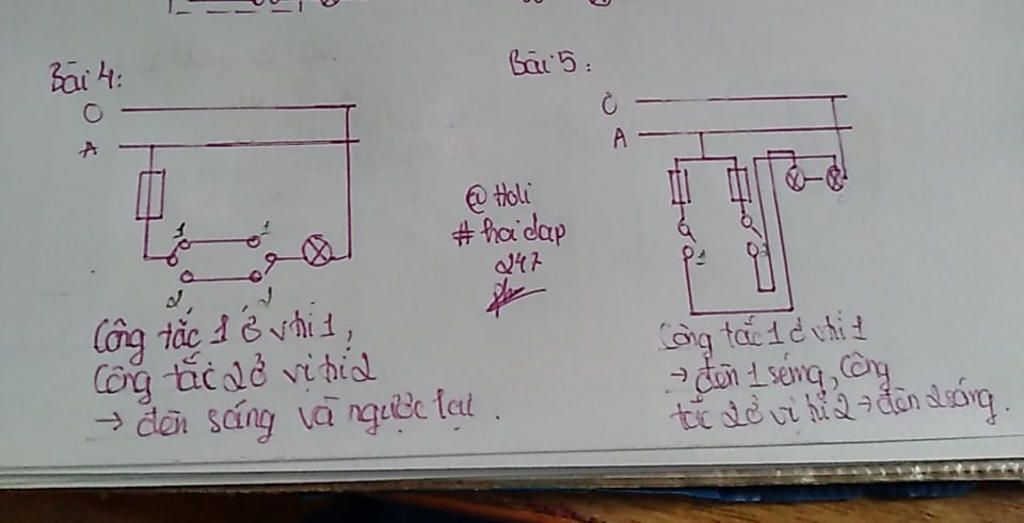 Bài 4:
O
A
1
1
2
2
Công tắc 1 ở vhi 1,
Công tắc 2 ở vi hi 2
→ đèn sáng và ngược lại.
@Holi
#hoidap
247
Bài 5:
O
A
1
Công tắc 1 ở vhi 1
→ đèn 1 sáng, Công
tắc 2 ở vị hi 2 → đèn 2 sáng.